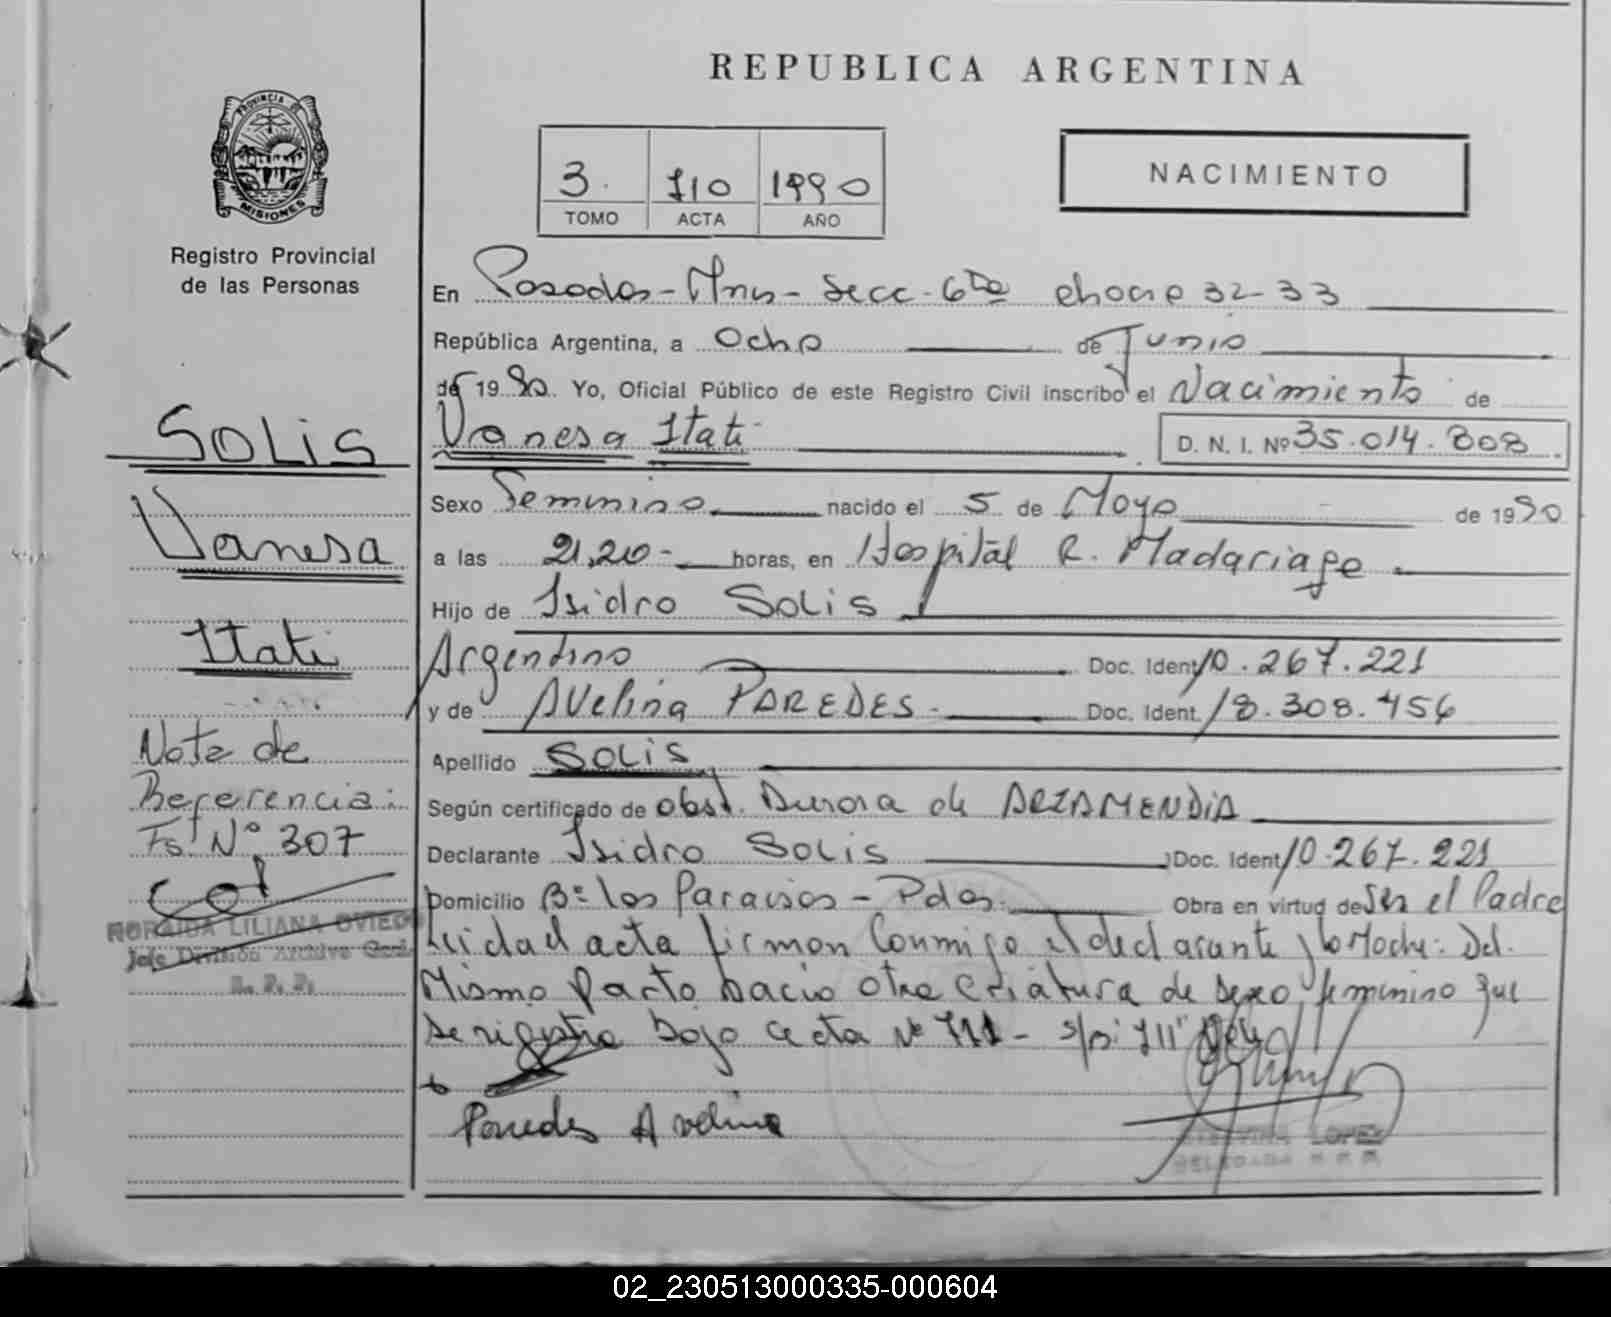 REPUBLICA ARGENTINA
PROVINCIA DE
MISIONES
Registro Provincial
de las Personas
3. 710 1990
TOMO ACTA AÑO
NACIMIENTO
En Posadas - Mnes - Secc - 6ta chacra 32-33
República Argentina, a Ocho de Junio
de 1990 Yo, Oficial Público de este Registro Civil inscribo el Nacimiento de
Vanesa Itati D. N. I. Nº 35.014.808
Sexo Femenino nacido el 5 de Mayo de 1990
a las 21,20 - horas, en Hospital R. Madariaga
Hijo de Isidro SOLIS
Argentino Doc. Ident. 10.267.221
y de Avelina PAREDES - Doc. Ident. 18.308.456
Apellido SOLIS
Según certificado de obst. Aurora de ARZAMENDIA
Declarante Isidro SOLIS Doc. Ident. 10.267.221
Domicilio Bº Los Paraisos - Pdas. Obra en virtud de Ser el Padre
Leida el acta firman Conmigo el declarante y la Madre: Del
Mismo parto nacio otra criatura de sexo femenino que
se registra bajo acta Nº 711 - s/r: 711" Vale
Paredes Avelina
LOPEZ
DELEGADA R.P.P.
SOLIS
Vanesa
Itati
Nota de
Referencia:
Fs Nº 307
LILIANA OVIEDO
Jefe División Archivo Gral.
R.P.P.
02_230513000335-000604